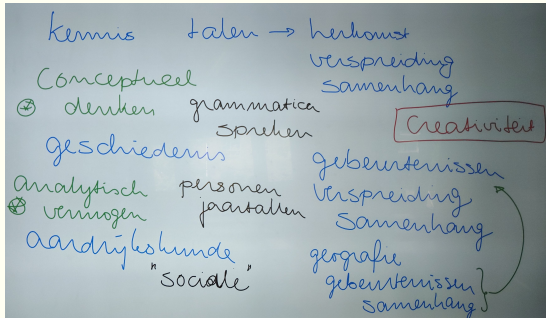 kennis talen → herkomst
verspreiding
samenhang
Conceptueel
denken
grammatica
spreken
Creativiteit
geschiedenis
gebeurtenissen
verspreiding
samenhang
analytisch
vermogen
personen
jaartallen
aardrijkskunde
"sociale"
geografie
gebeurtenissen
samenhang